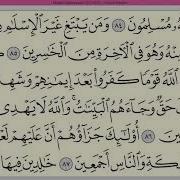 مُسْلِمُونَ ٨٤ وَمَن يَبْتَغِ غَيْرَ ٱلْإِسْلَٰمِ
مِنْهُ وَهُوَ فِى ٱلْأَخِرَةِ مِنَ ٱلْخَٰسِرِينَ ٨٥
ٱللَّهُ قَوْمًا كَفَرُوا۟ بَعْدَ إِيمَٰنِهِمْ وَشَهِ
حَقٌّ وَجَآءَهُمُ ٱلْبَيِّنَٰتُ وَٱللَّهُ لَا يَهْدِى
ينَ ٨٦ أُو۟لَٰٓئِكَ جَزَآؤُهُمْ أَنَّ عَلَيْهِمْ لَعْ
ئِكَةِ وَٱلنَّاسِ أَجْمَعِينَ ٨٧ خَٰلِدِينَ فِيهَا